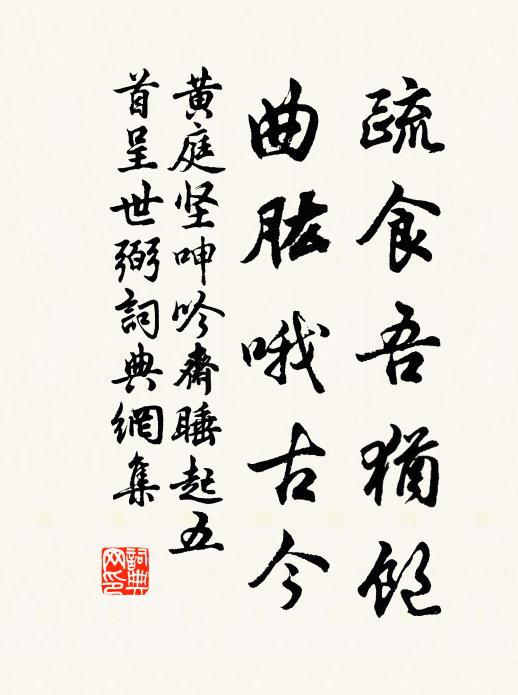 疏食吾猶飽
曲肱哦古今
黄庭坚呻吟齋睡起五
首呈世弼詞典網集
詞典网印